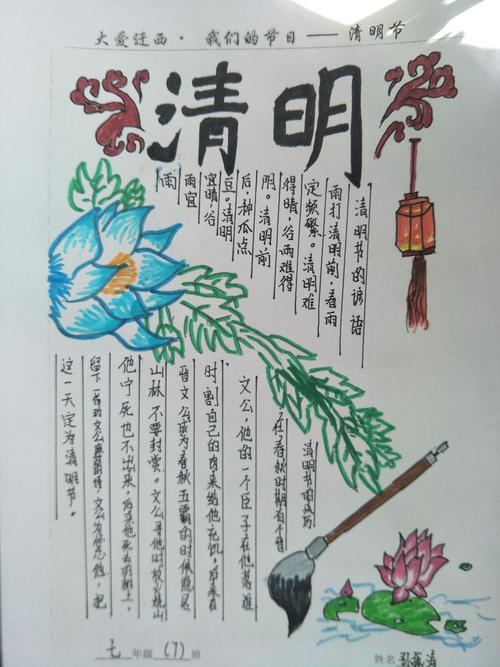 大爱迁西·我们的节日——清明节
清明
清明节的谚语
雨打清明前,春雨
定频繁。清明难
得晴,谷雨难得
阴。清明前
后,种瓜点
豆。清明
宜晴,谷
雨宜
雨
清明节的
在春秋时期有个晋
文公,他的一个臣子在他落难
时割自己的肉来给他充饥,后来在
晋文公成为春秋五霸的时候隐居
山林不要封赏。文公寻他时放火烧山
他宁死也不出来,后来他死去的树上,
留下一首劝文公的诗,文公为纪念他,把
这一天定为清明节。
七年级(7)班
姓名